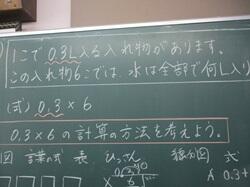 1こで0.3L入る入れ物があります。
この入れ物6こでは、水は全部で何L入り
(式) 0.3×6
0.3×6の計算の方法を考えよう。
図 言葉の式 表 ひっさん 線分図 式
× 6